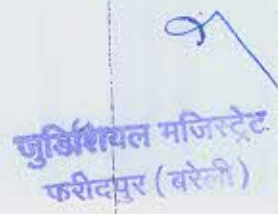 जुडिशियल मजिस्ट्रेट
फरीदपुर (बरेली)